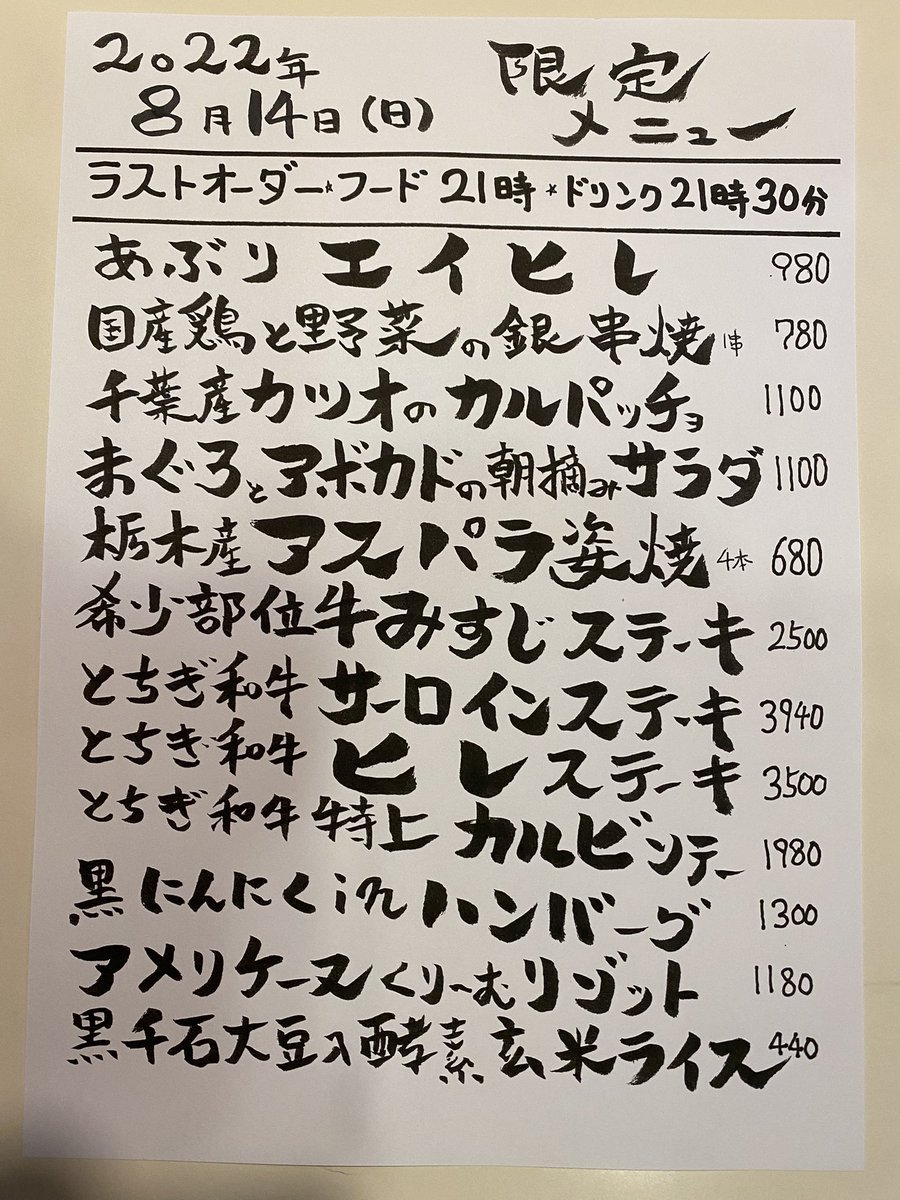 2022年
8月14日(日)
限定
メニュー
ラストオーダー☆フード 21時 ☆ドリンク21時30分
あぶり エイヒレ 980
国産鶏と野菜の銀串焼 1串 780
千葉産カツオのカルパッチョ 1100
まぐろとアボカドの朝摘みサラダ 1100
栃木産アスパラ姿焼 4本 680
希少部位牛みすじステーキ 2500
とちぎ和牛 サーロインステーキ 3940
とちぎ和牛 ヒレステーキ 3500
とちぎ和牛 特上 カルビソテー 1980
黒にんにくinハンバーグ 1300
アメリケーヌくりーむリゾット 1180
黒千石大豆入酵素玄米ライス 440